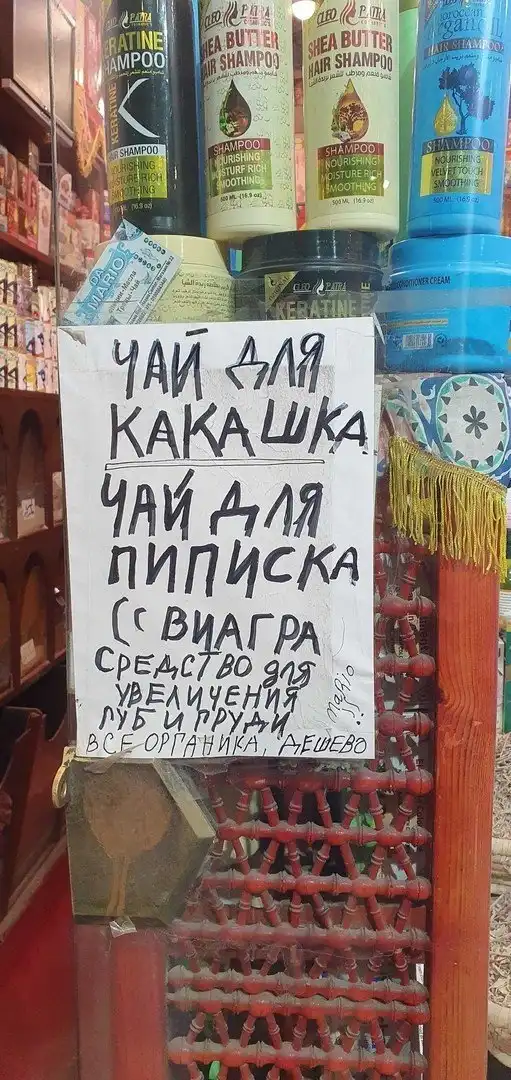 CLEO PATRA
KERATINE
SHAMPOO
HAIR SHAMPOO
NOURISHING
MOISTURE RICH
SMOOTHING
500 ML (16.9 oz)
CLEO PATRA
SHEA BUTTER
HAIR SHAMPOO
SHAMPOO
NOURISHING
MOISTURE RICH
SMOOTHING
500 ML (16.9 oz)
CLEO PATRA
SHEA BUTTER
HAIR SHAMPOO
SHAMPOO
NOURISHING
MOISTURE RICH
SMOOTHING
500 ML (16.9 oz)
HAIR SHAMPOO
SHAMPOO
NOURISHING
VELVET TOUCH
SMOOTHING
500 ML (16.9 oz)
MARIO
CLEO PATRA
KERATINE
CONDITIONER CREAM
ЧАЙ ДЛЯ
КАКАШКА
ЧАЙ ДЛЯ
ПИПИСКА
(( ВИАГРА
СРЕДСТВО для
УВЕЛИЧЕНИЯ
ГУБ И ГРУДИ
ВСЕ ОРГАНИКА, ДЕШЕВО